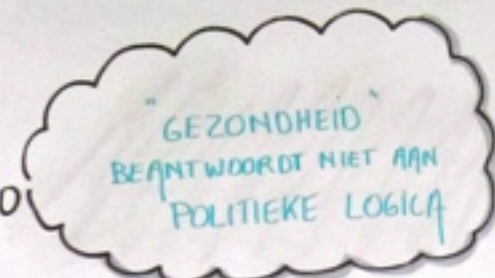 "GEZONDHEID"
BEANTWOORDT NIET AAN
POLITIEKE LOGICA